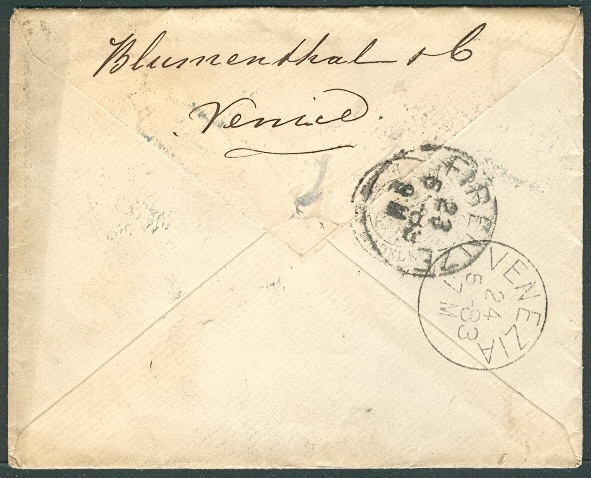 Blumenthal & C
Venice.
FIRENZE
23
5
VENEZIA
24
5-83
7M